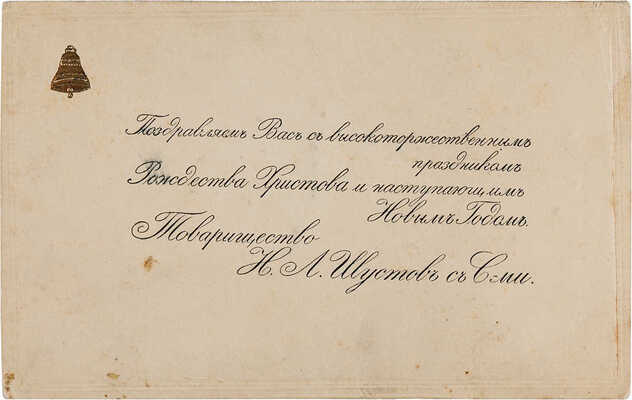 Поздравляемъ Васъ съ высокоторжественнымъ
праздникомъ
Рождества Христова и наступающимъ
Новымъ Годомъ.
Товарищество
Н. Л. Шустовъ съ С-ми.